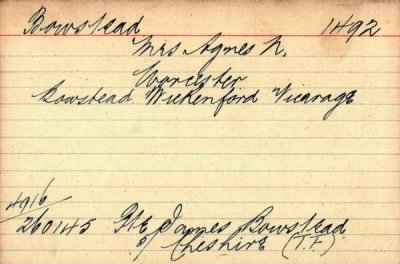 Bowstead 1492
Mrs Agnes N.
Worcester
Bowstead Wickenford Vicarage
4916/
260145 Pte James Bowstead
of Cheshire (T.F.)